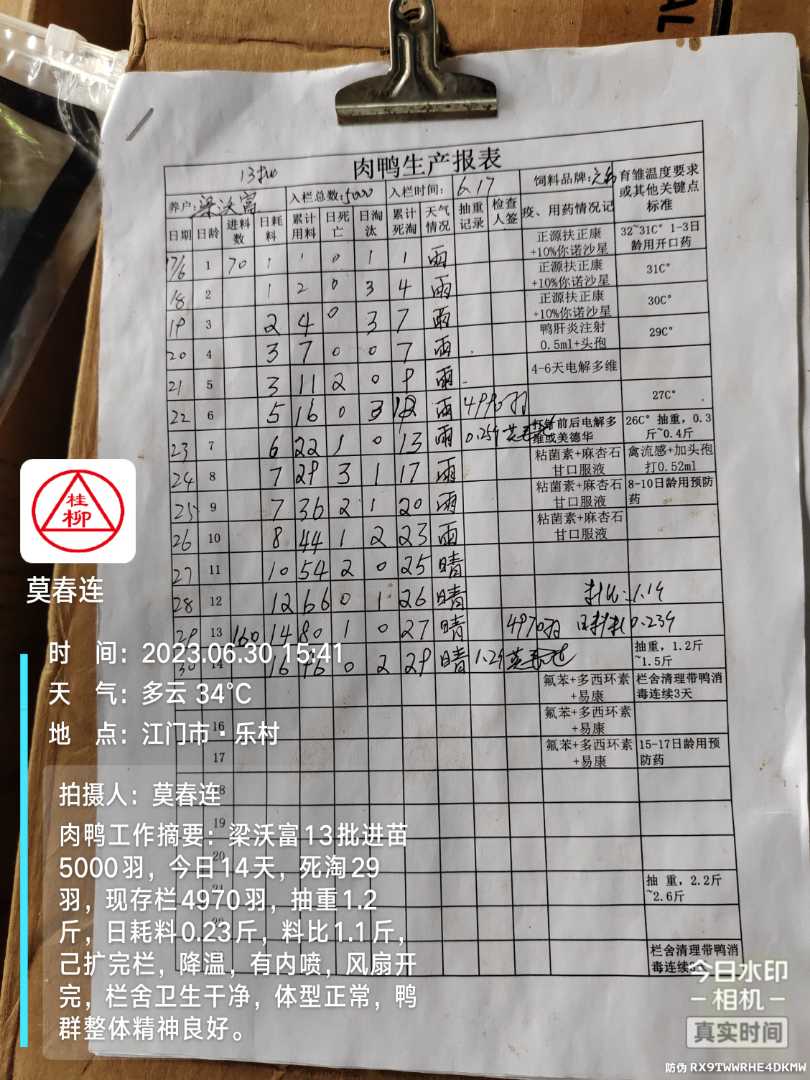 AL
13批
肉鸭生产报表
养户:梁沃富 入栏总数:5000 入栏时间:6.17 饲料品牌: 育雏温度要求或其他关键点标准
日期 日龄 进料数 日耗料 累计用料 日死亡 日淘汰 累计死淘 天气情况 抽重记录 检查人签 疫、用药情况记
17/6 1 70 1 1 0 1 1 雨 正源扶正康+10%你诺沙星 32~31C° 1-3日龄用开口药
18 2 1 2 0 3 4 雨 正源扶正康+10%你诺沙星 31C°
19 3 2 4 0 3 7 雨 正源扶正康+10%你诺沙星 30C°
20 4 3 7 0 0 7 雨 鸭肝炎注射0.5ml+头孢 29C°
21 5 3 11 2 0 9 雨 4-6天电解多维
22 6 5 16 0 3 12 雨 4990羽 27C°
23 7 6 22 1 0 13 雨 0.25斤 前后电解多维或美德华 26C° 抽重,0.3斤~0.4斤
24 8 7 29 3 1 17 雨 粘菌素+麻杏石甘口服液 禽流感+加头孢打0.52ml
25 9 7 36 2 1 20 雨 粘菌素+麻杏石甘口服液 8-10日龄用预防药
26 10 8 44 1 2 23 雨 粘菌素+麻杏石甘口服液
27 11 10 54 2 0 25 晴
28 12 12 66 0 1 26 晴 料比:1.1斤
29 13 160 14 80 1 0 27 晴 4970羽 日耗料0.23斤
30 14 16 96 0 2 29 晴 1.2斤 莫春连 抽重,1.2斤~1.5斤
氟苯+多西环素+易康 栏舍清理带鸭消毒连续3天
16 氟苯+多西环素+易康
17 氟苯+多西环素+易康 15-17日龄用预防药
19
20
抽重,2.2斤~2.6斤
栏舍清理带鸭消毒连续
桂柳
莫春连
时 间:2023.06.30 15:41
天 气:多云 34℃
地 点:江门市·乐村
拍摄人:莫春连
肉鸭工作摘要:梁沃富13批进苗
5000羽,今日14天,死淘29
羽,现存栏4970羽,抽重1.2
斤,日耗料0.23斤,料比1.1斤,
己扩完栏,降温,有内喷,风扇开
完,栏舍卫生干净,体型正常,鸭
群整体精神良好。
今日水印
相机
真实时间
防伪 RX9TWWRHE4DKMW